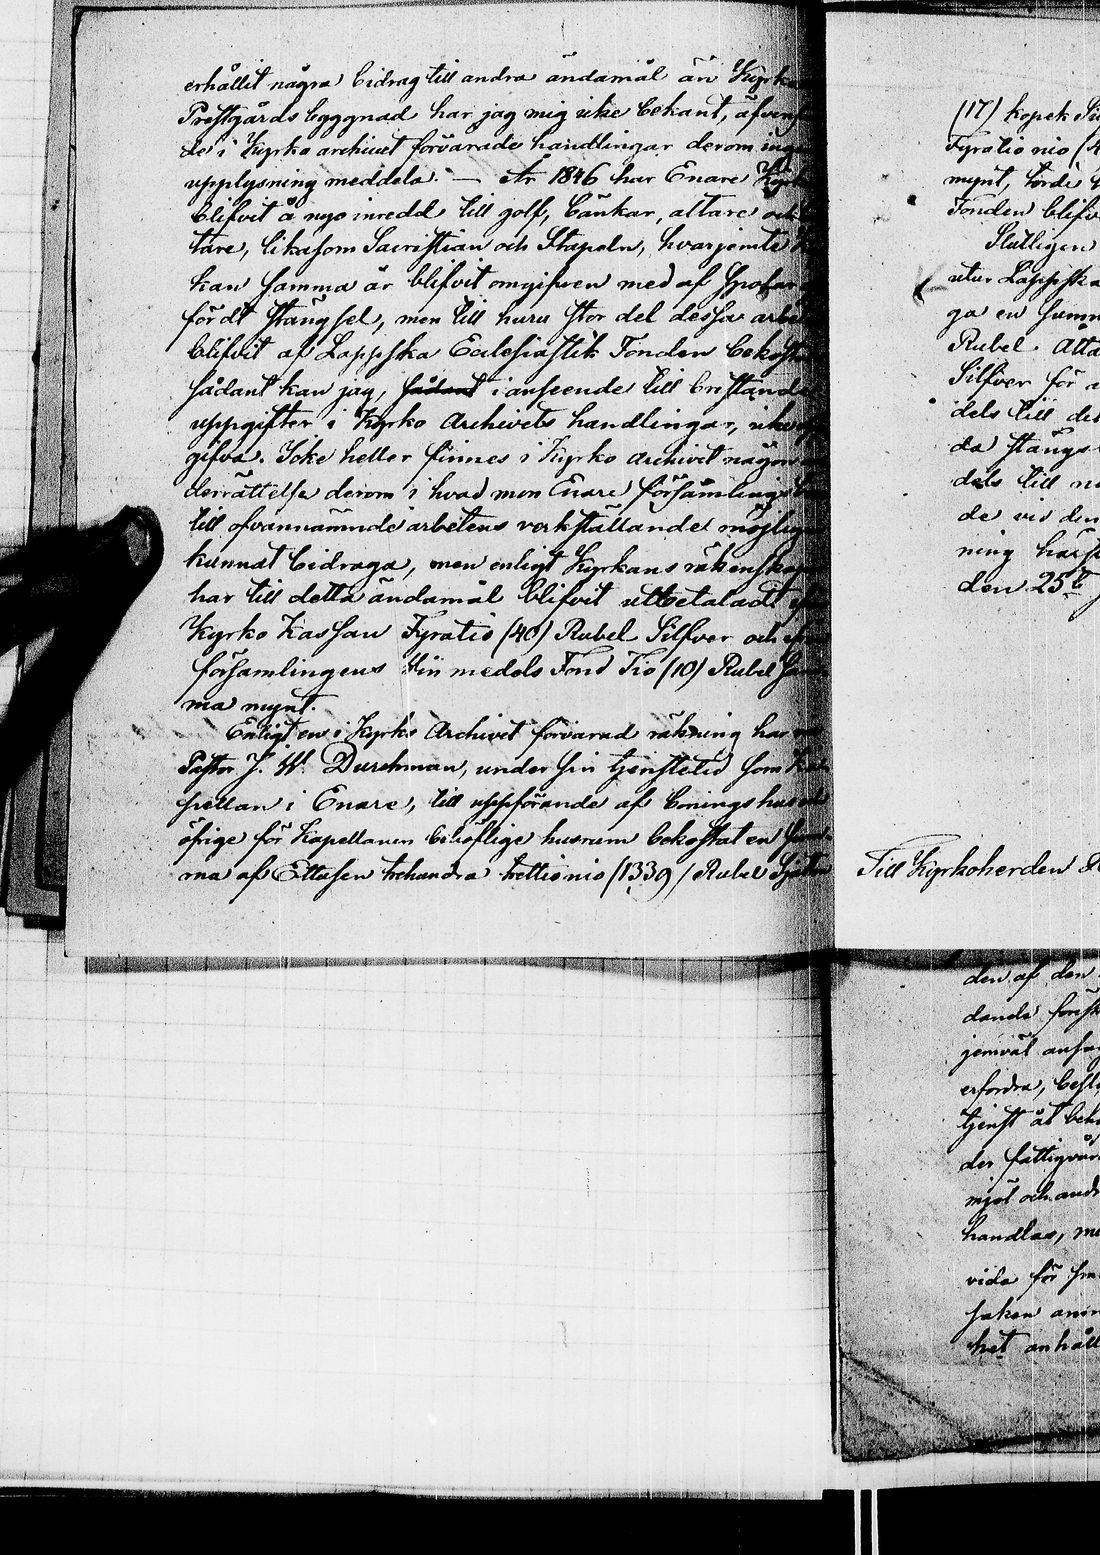 erhållit några bidrag till andra ändamål än Kyrko
Prestgårds byggnad har jag mig icke bekant, äfven
de i Kyrko archivet förvarade handlingar derom ingen
upplysning meddela. — År 1846 har Enare Kyrka
blifvit å nyo inredd till golf, bänkar, altare och
tare, likasom Sacristian och Stapeln, hvarjemte
kan samma år blifvit omgifven med af
fördt stängsel, men till huru stor del dessa arbe
blifvit af Lappska Ecclesiastik Fonden bekost
sådant kan jag, sådant i anseende till bristande
uppgifter i Kyrko Archivets handlingar, icke
gifva. Icke heller finnes i Kyrko Archivet någon
derrättelse derom i hvad mon Enare församling
till ofvannämnde arbetens verkställande möjligen
kunnat bidraga, men enligt Kyrkans räkenskaper
har till detta ändamål blifvit utbetaladt
Kyrko Kassan Fyratio (40) Rubel Silfver och
församlingens medels Fond Tio (10) Rubel sam
ma mynt.
Enligt en i Kyrko Archivet förvarad räkning har
Pastor J. W. Durchman, under sin tjenstetid som Ka
pellan i Enare, till uppförande af boningshus och
öfrige för Kapellanen behöflige husrum bekostat en sum
ma af Ettusen trehundra trettionio (1339) Rubel Sjutton
(17) kopek Si
Fyrationio (4
mynt, borde
Fonden blifv
Slutligen
utur Lappska
ga en summ
Rubel Åtta
Silfver för a
dels till det
da stängs
dels till n
de vid den
ning
den 25
Till Kyrkoherden
den af den
dande föresk
jemväl anfö
erfordra, best
tjenst åt beh
der fattigvår
mjöl och andr
handlas, m
vida för
saken anm
het anhåll